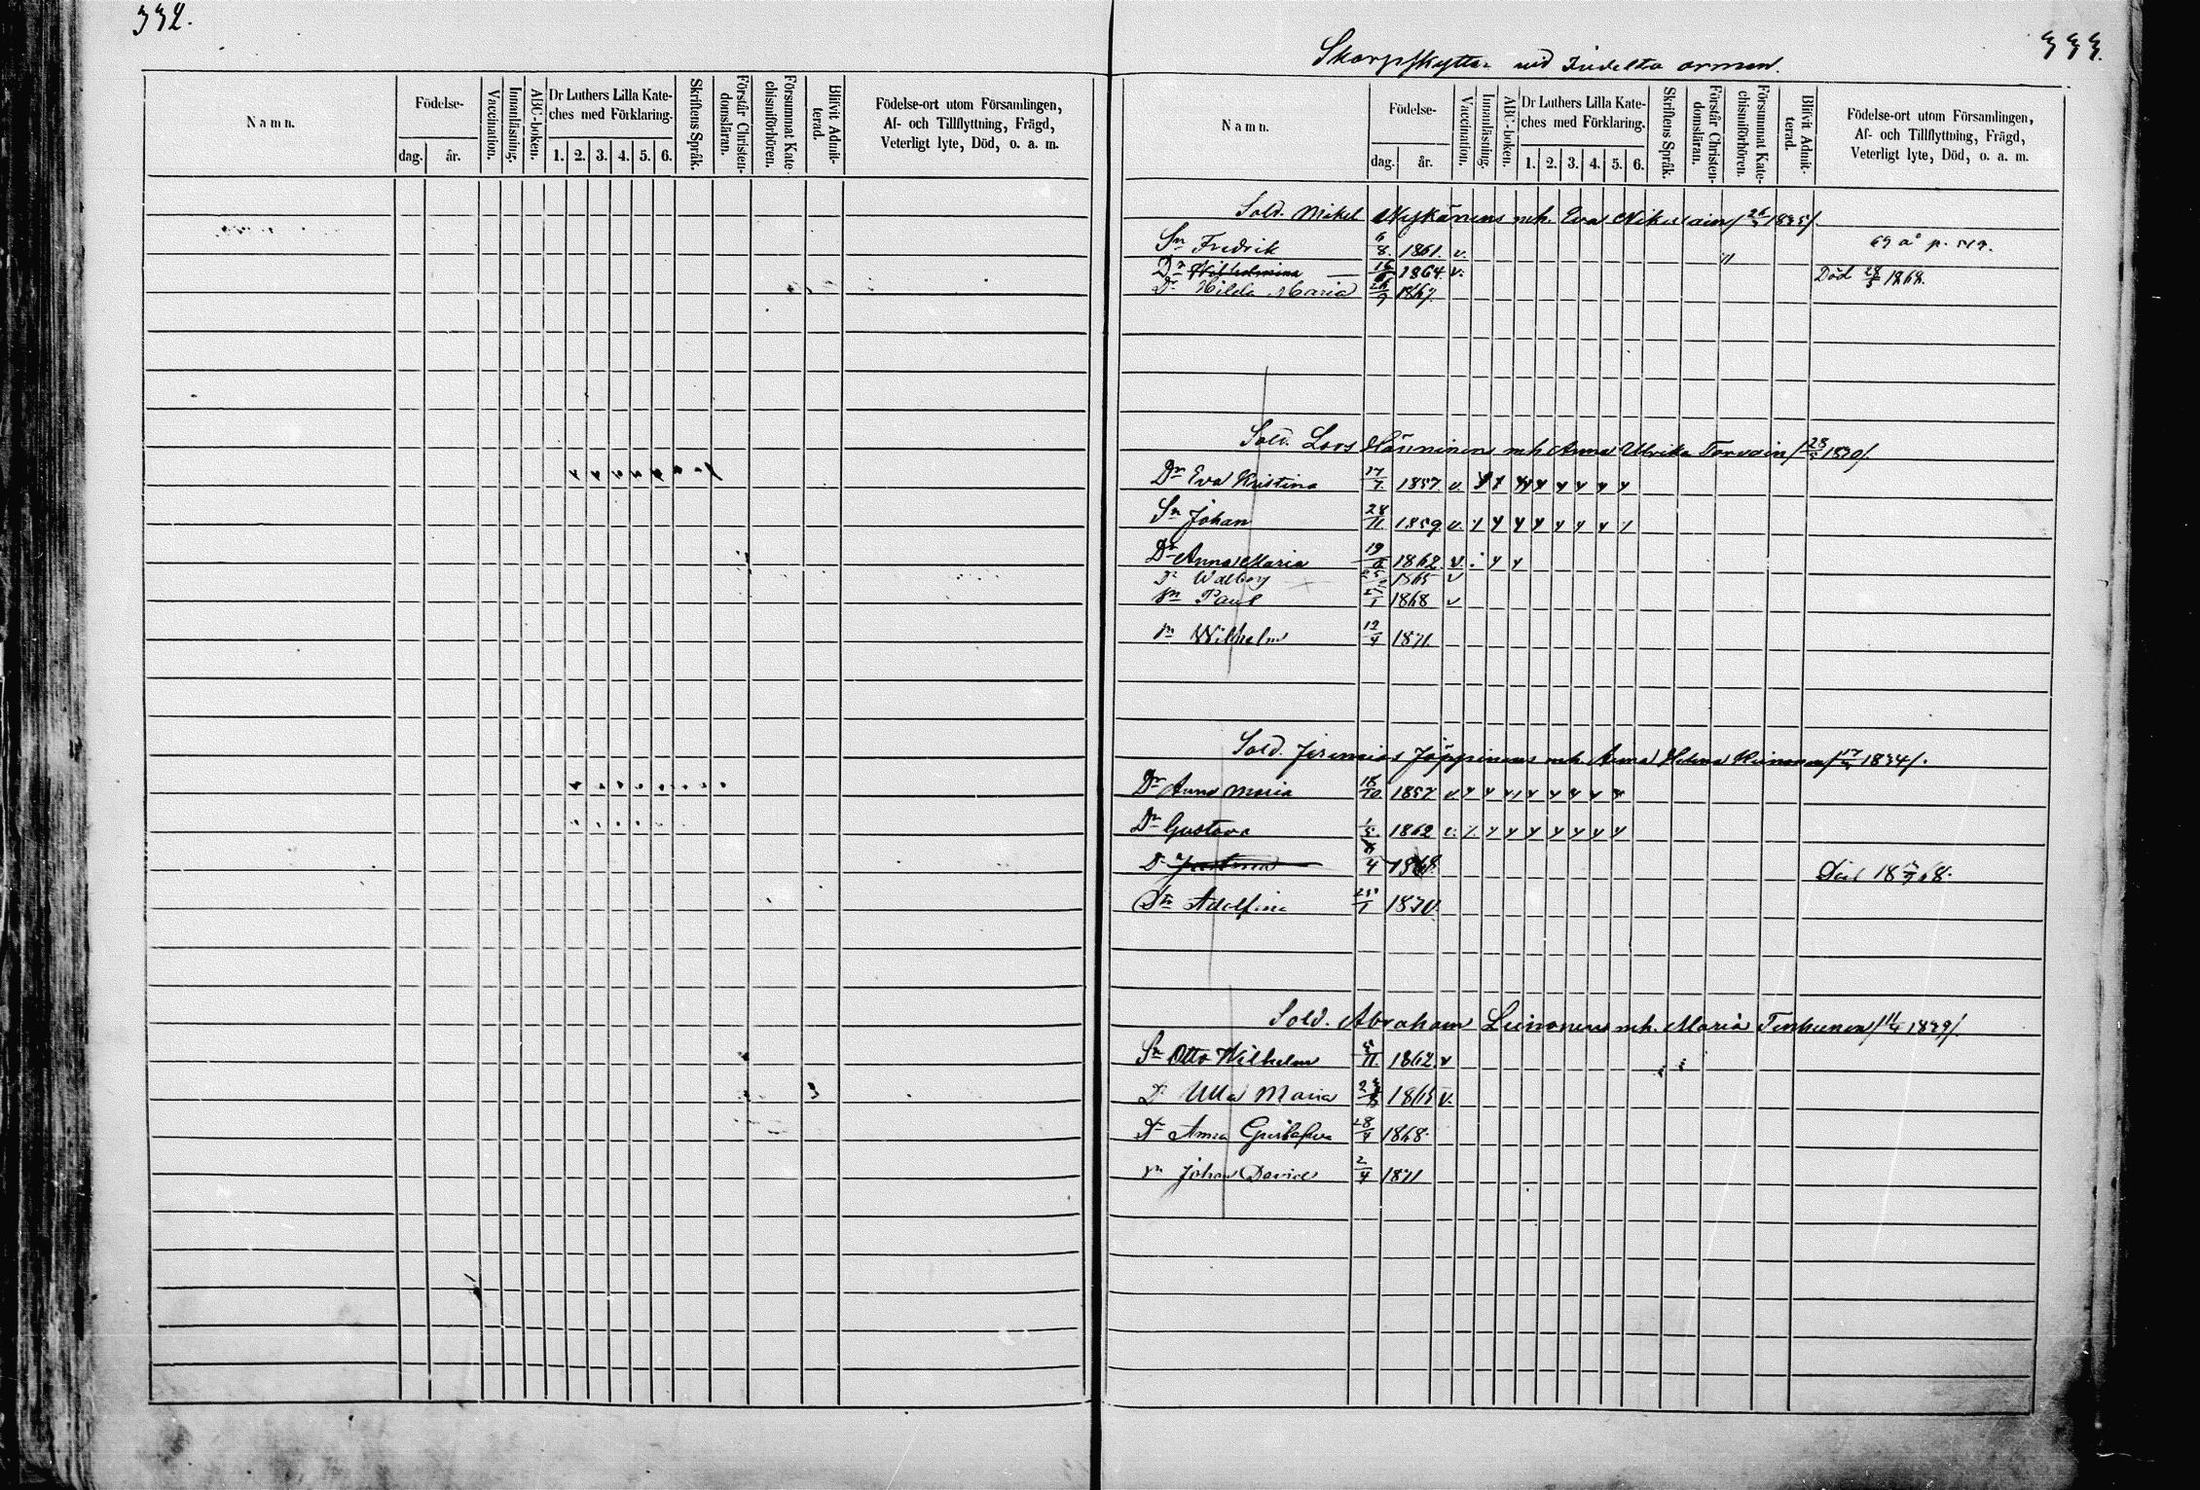 332.
Namn.
Födelse-
dag.
år.
Vaccination.
Innanläsning.
ABC-boken.
Dr Luthers Lilla Kate-
ches med Förklaring.
1. 2. 3. 4. 5. 6.
Skriftens Språk.
Förstår Christen-
domsläran.
Försummat Kate-
chismiförhören.
Blifvit Admit-
terad.
Födelse-ort utom Församlingen,
Af- och Tillflyttning, Frägd,
Veterligt lyte, Död, o. a. m.
333.
Skarpskyttar vid Indelta armen.
Namn.
Födelse-
dag.
år.
Vaccination.
Innanläsning.
ABC-boken.
Dr Luthers Lilla Kate-
ches med Förklaring.
1. 2. 3. 4. 5. 6.
Skriftens Språk.
Förstår Christen-
domsläran.
Försummat Kate-
chismiförhören.
Blifvit Admit-
terad.
Födelse-ort utom Församlingen,
Af- och Tillflyttning, Frägd,
Veterligt lyte, Död, o. a. m.
Sold. Mikel Nykänens mh. Eva 1835/.
Sn Fredrik 6/8 1861. v.
Dr Wilhelmina 1864 v. Död 1868.
Dr Hilda Maria 26/9 1867.
Sold. Lars Hänninens mh Anna Ulrika Tarvain 1830/
Dr Eva Kristina 17/7 1857 v.
Sn Johan 28/11 1859 v.
Dr Anna Maria 1862 v
Dr Walborg 1865 v
Sn Paul 1868 v
Sn Wilhelm 12/4 1871.
Sold. Jeremias Jäppinens mh. Anna Helena 1834/.
Dr Anna Maria 1857 v
Dr Gustava 1862 v.
Dr 1868.
Dr Adolfina 1870.
Sold. Abraham Leinonens mh. Maria Tenhunen 1839/.
Sn Otto Wilhelm 1862 v
Dr Ulla Maria 1865 v.
Dr Anna Gustafva 28/4 1868.
Sn Johan David 2/4 1871